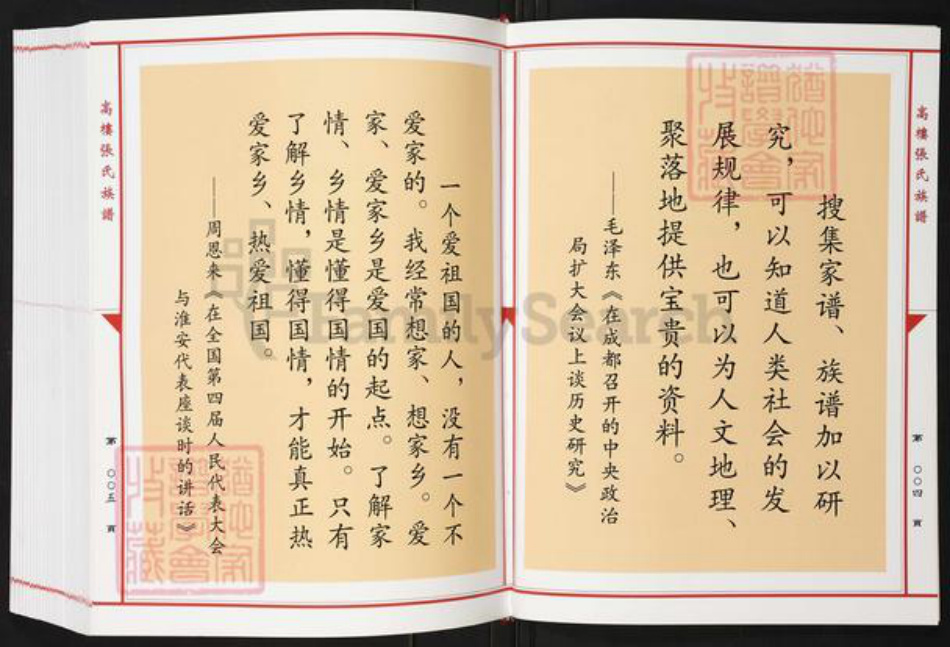 高樓張氏族譜
第 〇〇四 頁
搜集家谱、族谱加以研
究，可以知道人类社会的发
展规律，也可以为人文地理、
聚落地提供宝贵的资料。
——毛泽东《在成都召开的中央政治
局扩大会议上谈历史研究》
一个爱祖国的人，没有一个不
爱家的。我经常想家、想家乡。爱
家、爱家乡是爱国的起点。了解家
情、乡情是懂得国情的开始。只有
了解乡情，懂得国情，才能真正热
爱家乡、热爱祖国。
——周恩来《在全国第四届人民代表大会
与淮安代表座谈时的讲话》
高樓張氏族譜
第 〇〇五 頁
FamilySearch